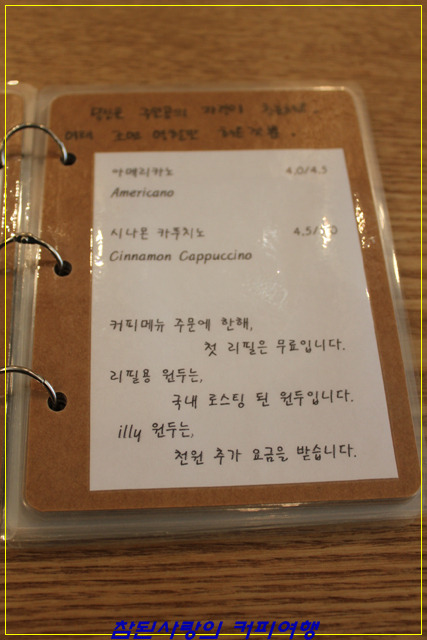 아메리카노 4.0/4.5
Americano
시나몬 카푸치노
Cinnamon Cappuccino
커피메뉴 주문에 한해,
첫 리필은 무료입니다.
리필용 원두는,
국내 로스팅 된 원두입니다.
illy 원두는,
천원 추가 요금을 받습니다.
참된사랑의 커피여행